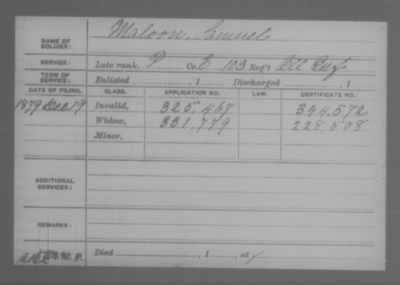 NAME OF SOLDIER: Maloon, Samuel
SERVICE: Late rank, P Co. E 103 Reg't Ill Inf
TERM OF SERVICE: Enlisted , 1 Discharged , 1
DATE OF FILING. CLASS. APPLICATION NO. LAW. CERTIFICATE NO.
1879 Dec 19 Invalid, 325,467 344,572
Widow, 331,779 228,508
Minor,
ADDITIONAL SERVICES:
REMARKS:
Died , 1 , at